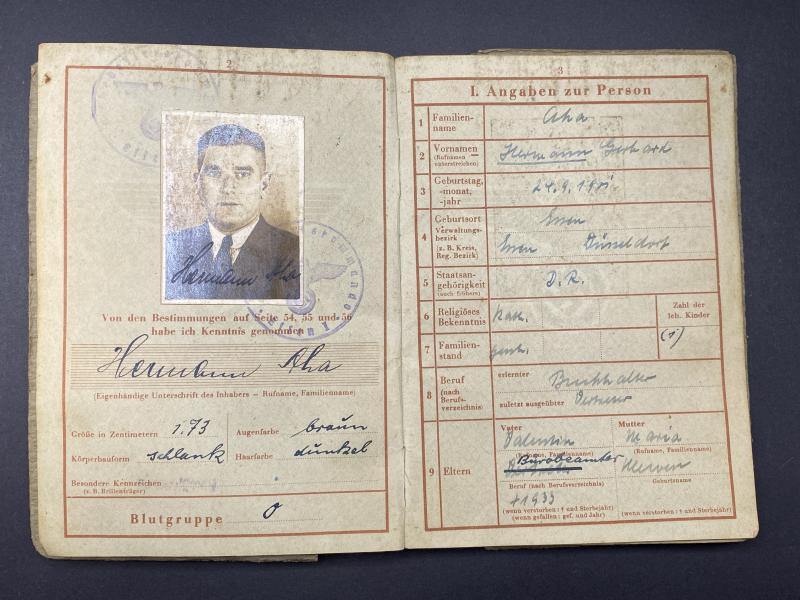 2
Hermann Aha
Von den Bestimmungen auf Seite 54, 55 und 56
habe ich Kenntnis genommen
Hermann Aha
(Eigenhändige Unterschrift des Inhabers – Rufname, Familienname)
Größe in Zentimetern 1.73 Augenfarbe braun
Körperbauform schlank Haarfarbe dunkel
Besondere Kennzeichen
(z. B. Brillenträger)
Blutgruppe O
3
I. Angaben zur Person
1 Familien-
name Aha
2 Vornamen
(Rufnamen
unterstreichen) Hermann Gerhard
3 Geburtstag,
-monat,
-jahr 24.9.
4 Geburtsort Essen
Verwaltungs-
bezirk
(z. B. Kreis,
Reg. Bezirk) Essen Düsseldorf
5 Staatsan-
gehörigkeit
(auch frühere) D. R.
6 Religiöses
Bekenntnis Kath.
Zahl der
leb. Kinder
(1)
7 Familien-
stand gesch.
8 Beruf
(nach
Berufs-
verzeichnis)
erlernter
Buchhalter
zuletzt ausgeübter
9 Eltern
Vater
Valentin
(Rufname, Familienname)
Bürobeamter
Beruf (nach Berufsverzeichnis)
† 1933
(wenn verstorben: † und Sterbejahr)
(wenn gefallen: gef. und Jahr)
Mutter
Maria
(Rufname, Familienname)
Geburtsname
(wenn verstorben: † und Sterbejahr)